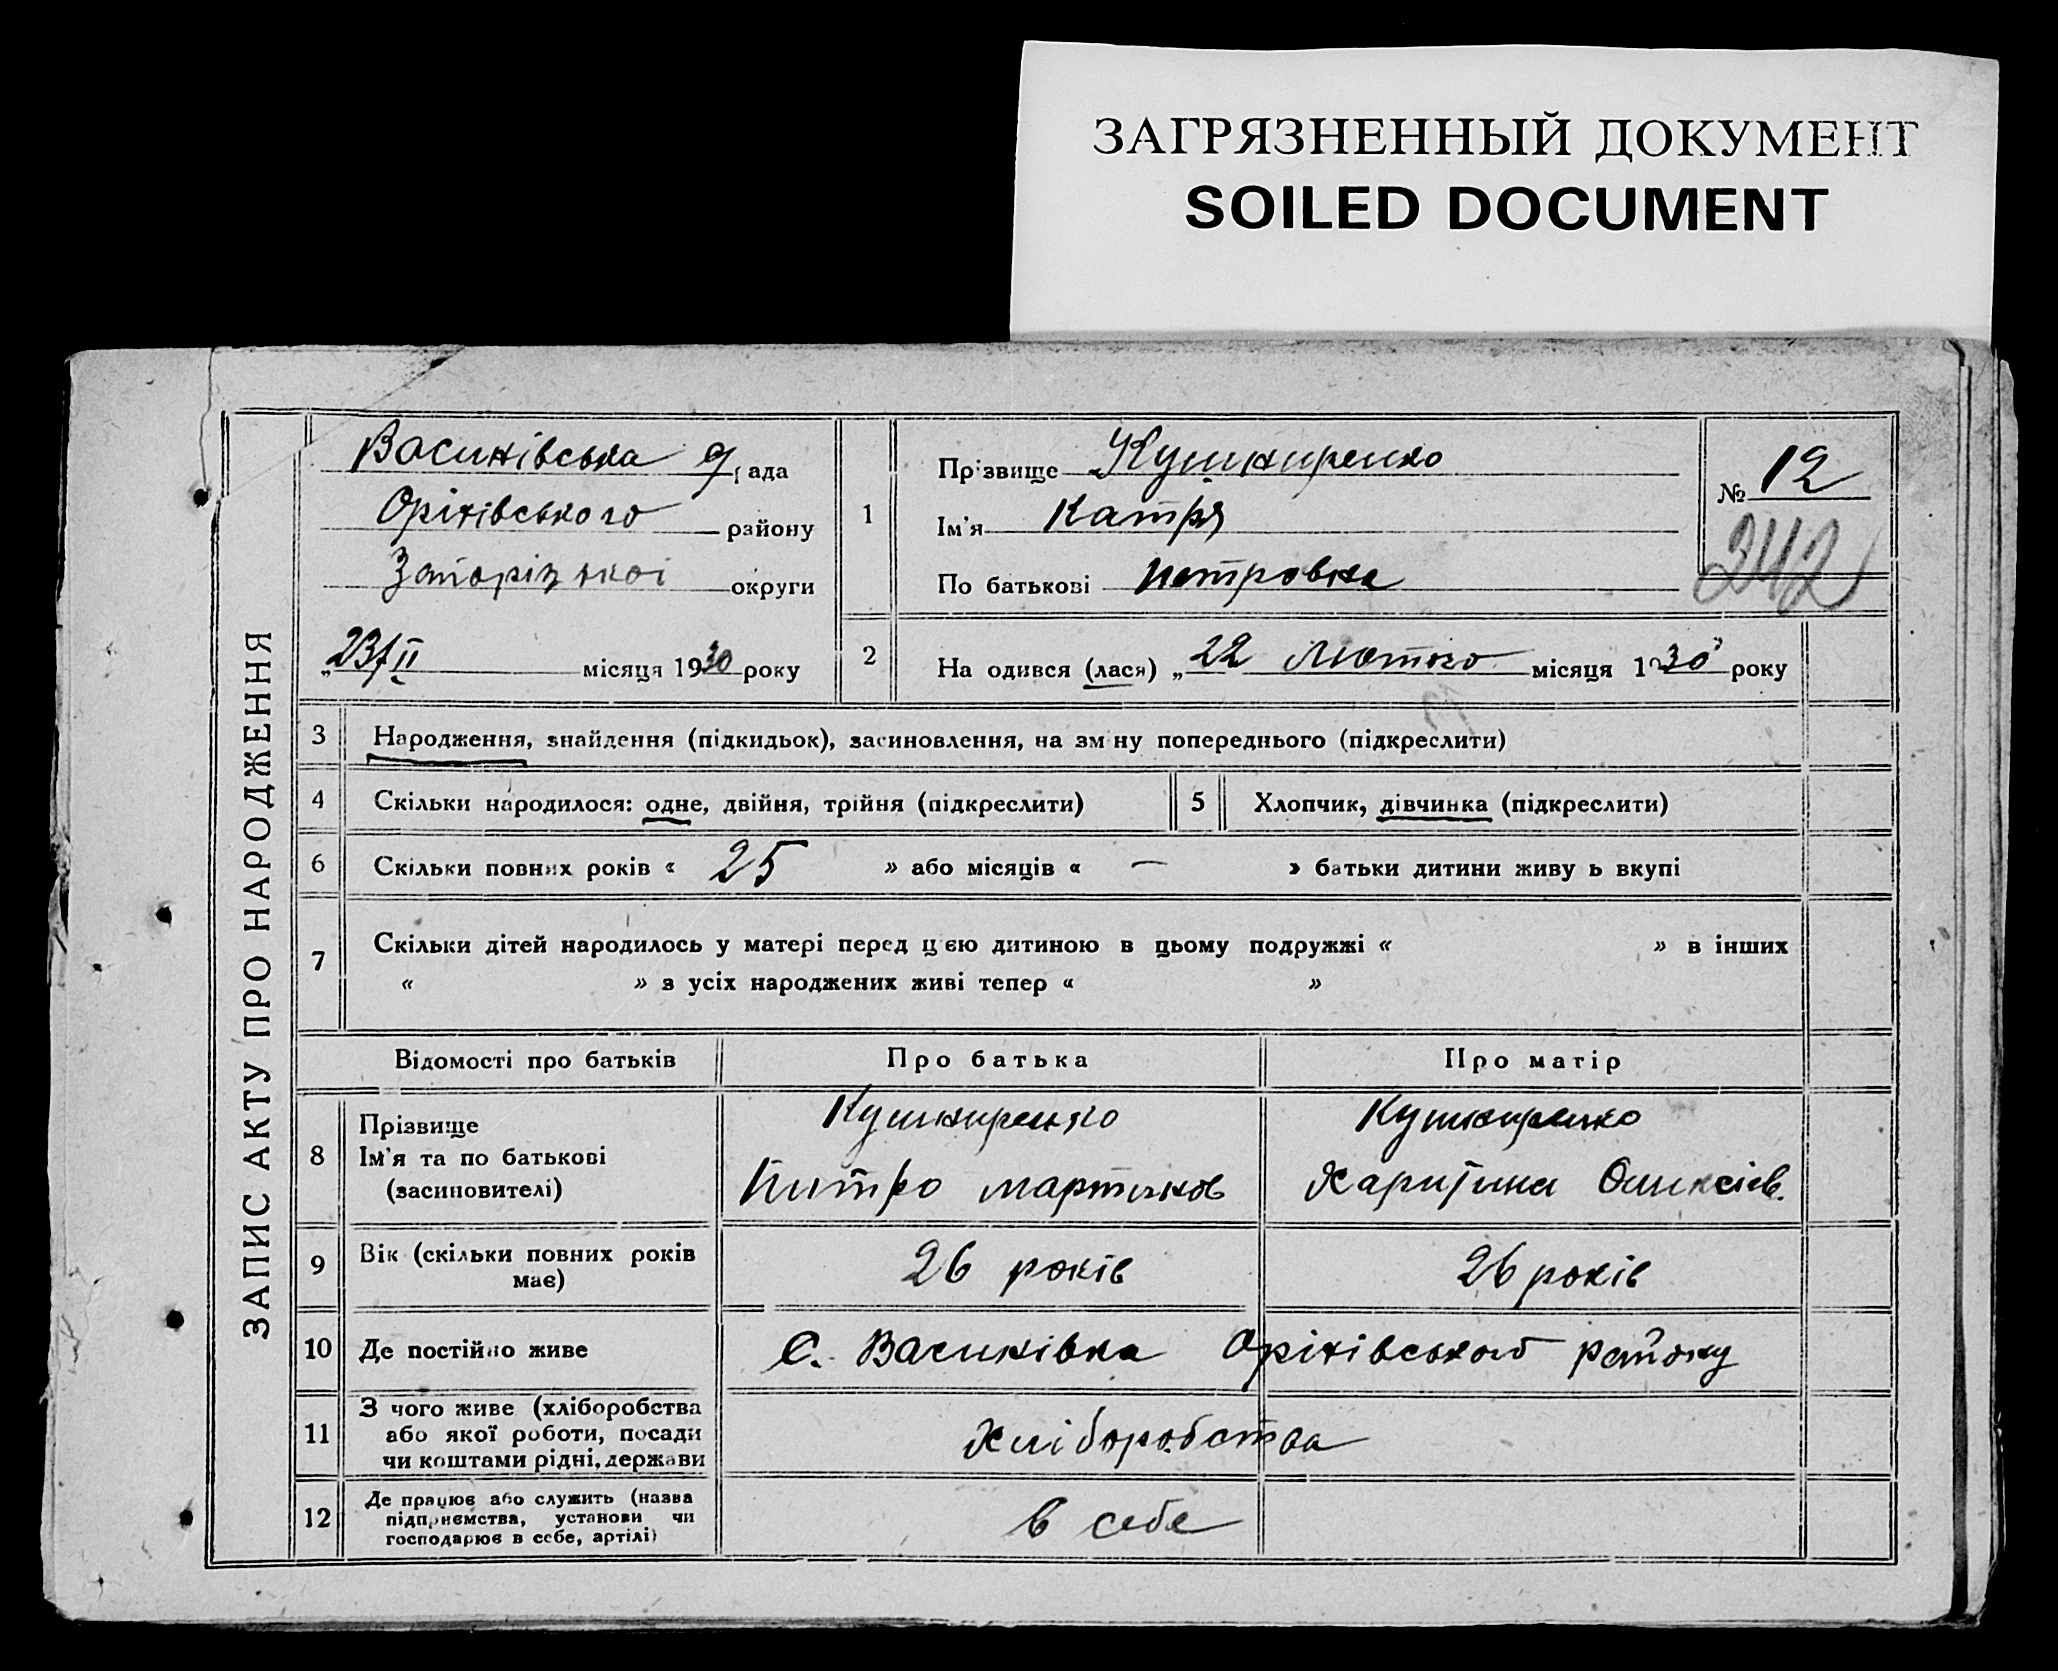 ЗАГРЯЗНЕННЫЙ ДОКУМЕНТ
SOILED DOCUMENT
ЗАПИС АКТУ ПРО НАРОДЖЕННЯ
Васинівська рада
Оріхівського району
Запорізької округи
„23/II місяця 1930 року
1
Прізвище Кушниренко
Ім'я Катря
По батькові Петровна
№ 12
242
2
На одився (лася) „22 Лютого місяця 1930 року
3 Народження, знайдення (підкидьок), засиновлення, на зміну попереднього (підкреслити)
4 Скільки народилося: одне, двійня, трійня (підкреслити)
5 Хлопчик, дівчинка (підкреслити)
6 Скільки повних років « 25 » або місяців « — » батьки дитини живу ь вкупі
7 Скільки дітей народилось у матері перед цією дитиною в цьому подружжі « » в інших
« » з усіх народжених живі тепер « »
Відомості про батьків Про батька Про матір
8 Прізвище
Ім'я та по батькові
(засиновителі)
Кушниренко
Питро Мартинов
Кушниренко
Харитина Оликсіів.
9 Вік (скільки повних років
має)
26 років
26 років
10 Де постійно живе
С. Васинівка Оріхівського району
11 З чого живе (хліборобства
або якої роботи, посади
чи коштами рідні, держави
Хліборобства
12 Де працює або служить (назва
підприємства, установи чи
господарює в себе, артілі)
в себе